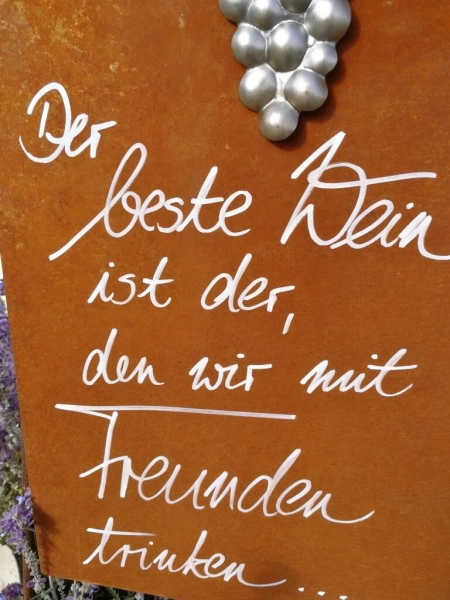 Der
beste Wein
ist der,
den wir mit
Freunden
trinken...